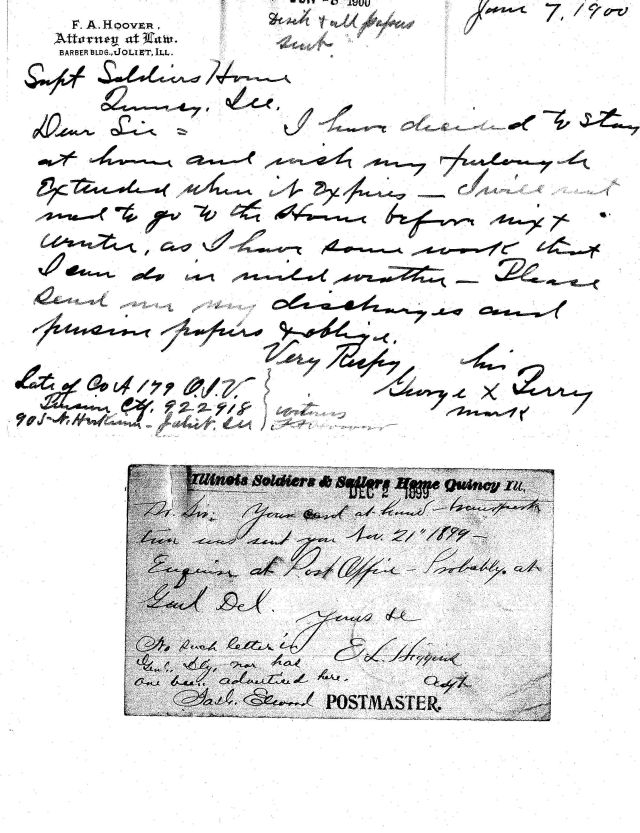 F. A. HOOVER,
Attorney at Law.
BARBER BLDG., JOLIET, ILL.
1900
Disch & all papers
sent
June 7, 1900
Supt Soldiers Home
Quincy, Ill.
Dear Sir = I have decided to stay
at home and wish my furlough
Extended when it Expires — I will not
need to go to the Home before next
winter, as I have some work that
I can do in mild weather — Please
send me my discharges and
pension papers & oblige.
Very Respy
his
George X Perry
mark
Late of Co A 179 O.I.V.
Pension Ctf. 922918
905 N. Joliet Ill
witness
Illinois Soldiers & Sailors Home Quincy Ill.
DEC 2 1899
Dr. Sir; Your card at hand — transporta
tion was sent you Nov. 21" 1899 —
Enquire at Post Office — Probably at
Genl Del.
Yours &c
E L. Higgins
Adjt
No such letter in
Genl. Dly, nor has
one been advertised here.
POSTMASTER.